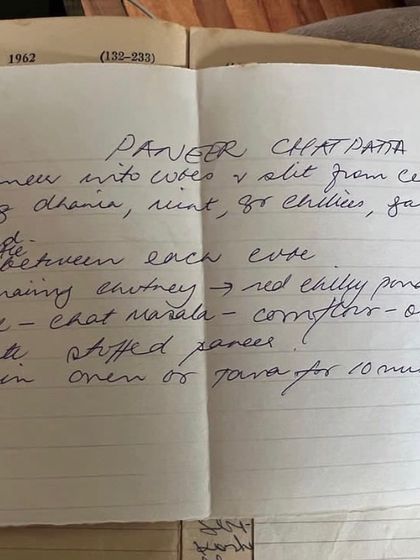 1962 (132–233)
PANEER CHATPATTA
into cubes & slit from ce
dhania, mint, gr chillies, ga
between each cube
chutney → red chilly
- chat masala - cornflour -
stuffed paneer.
in oven or tava for 10